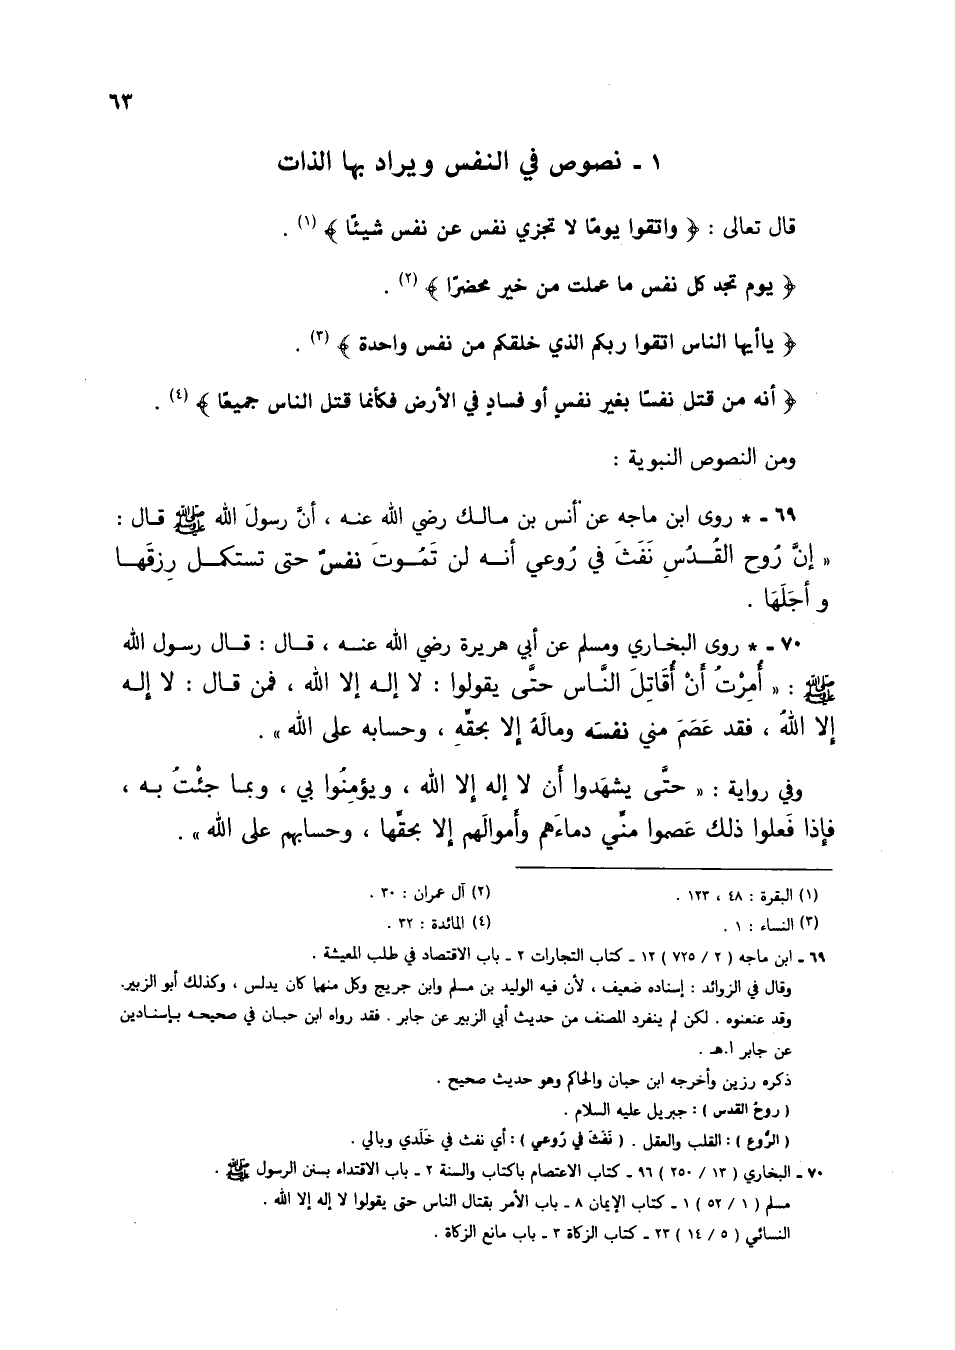 ٦٣
١ ـ نصوص في النفس ويراد بها الذات
قال تعالى : ﴿ واتقوا يومًا لا تجزي نفس عن نفس شيئًا ﴾ (١) .
﴿ يوم تجد كل نفس ما عملت من خير محضرًا ﴾ (٢) .
﴿ ياأيها الناس اتقوا ربكم الذي خلقكم من نفس واحدة ﴾ (٣) .
﴿ أنه من قتل نفسًا بغير نفسٍ أو فسادٍ في الأرض فكأنما قتل الناس جميعًا ﴾ (٤) .
ومن النصوص النبوية :
٦٩ ـ * روى ابن ماجه عن أنس بن مالك رضي الله عنه ، أنَّ رسولَ الله ﷺ قال :
« إنَّ رُوح القُدُسِ نَفَثَ في رُوعي أنه لن تَمُوتَ نفسٌ حتى تستكمل رِزقَها
وأجلَهَا .
٧٠ ـ * روى البخاري ومسلم عن أبي هريرة رضي الله عنه ، قال : قال رسول الله
ﷺ : « أُمِرْتُ أَنْ أُقَاتِلَ النَّاس حتَّى يقولوا : لا إله إلا الله ، فمن قال : لا إله
إلا اللهُ ، فقد عَصَمَ مني نفسَه ومالَهُ إلا بحقِّهِ ، وحسابه على الله » .
وفي رواية : « حتَّى يشهَدوا أن لا إله إلا الله ، ويؤمِنُوا بي ، وبما جئْتُ به ،
فإذا فَعلوا ذلك عَصموا منِّي دماءَهم وأموالَهم إلا بحقِّها ، وحسابهم على الله » .
(١) البقرة : ٤٨ ، ١٢٣ .
(٢) آل عمران : ٣٠ .
(٣) النساء : ١ .
(٤) المائدة : ٣٢ .
٦٩ ـ ابن ماجه ( ٢ / ٧٢٥ ) ١٢ ـ كتاب التجارات ٢ ـ باب الاقتصاد في طلب المعيشة .
وقال في الزوائد : إسناده ضعيف ، لأن فيه الوليد بن مسلم وابن جريج وكل منهما كان يدلس ، وكذلك أبو الزبير.
وقد عنعنوه . لكن لم ينفرد المصنف من حديث أبي الزبير عن جابر . فقد رواه ابن حبان في صحيحه بإسنادين
عن جابر ا.هـ .
ذكره رزين وأخرجه ابن حبان والحاكم وهو حديث صحيح .
( روحُ القدس ) : جبريل عليه السلام .
( الرُّوع ) : القلب والعقل . ( نَفَثَ في رُوعي ) : أي نفث في خَلَدي وبالي .
٧٠ ـ البخاري ( ١٣ / ٢٥٠ ) ٩٦ ـ كتاب الاعتصام باكتاب والسنة ٢ ـ باب الاقتداء بسنن الرسول ﷺ .
مسلم ( ١ / ٥٢ ) ١ ـ كتاب الإيمان ٨ ـ باب الأمر بقتال الناس حتى يقولوا لا إله إلا الله .
النسائي ( ٥ / ١٤ ) ٢٣ ـ كتاب الزكاة ٣ ـ باب مانع الزكاة .